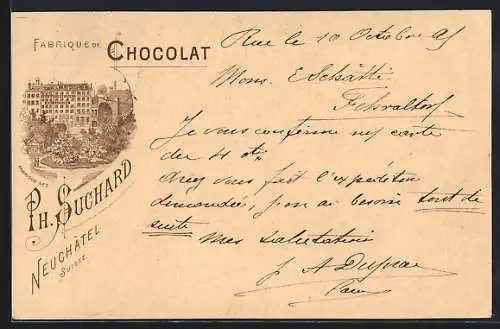 FABRIQUE DE CHOCOLAT
PH. SUCHARD
NEUCHÂTEL
SUISSE
Rue le 10 Octobre 95
Mons. E Schätti
Fehraltorf
Je vous confirme ma carte
du 4 ct
Avez vous fait l'expédition
demandée, j'en ai besoin tout de
suite
Mes salutations